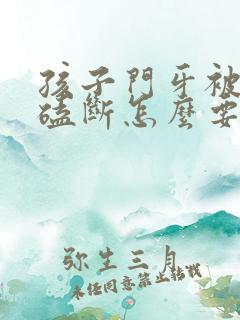 孩子門牙被
磕斷怎麼要
弥生三月
未任同意禁止転載